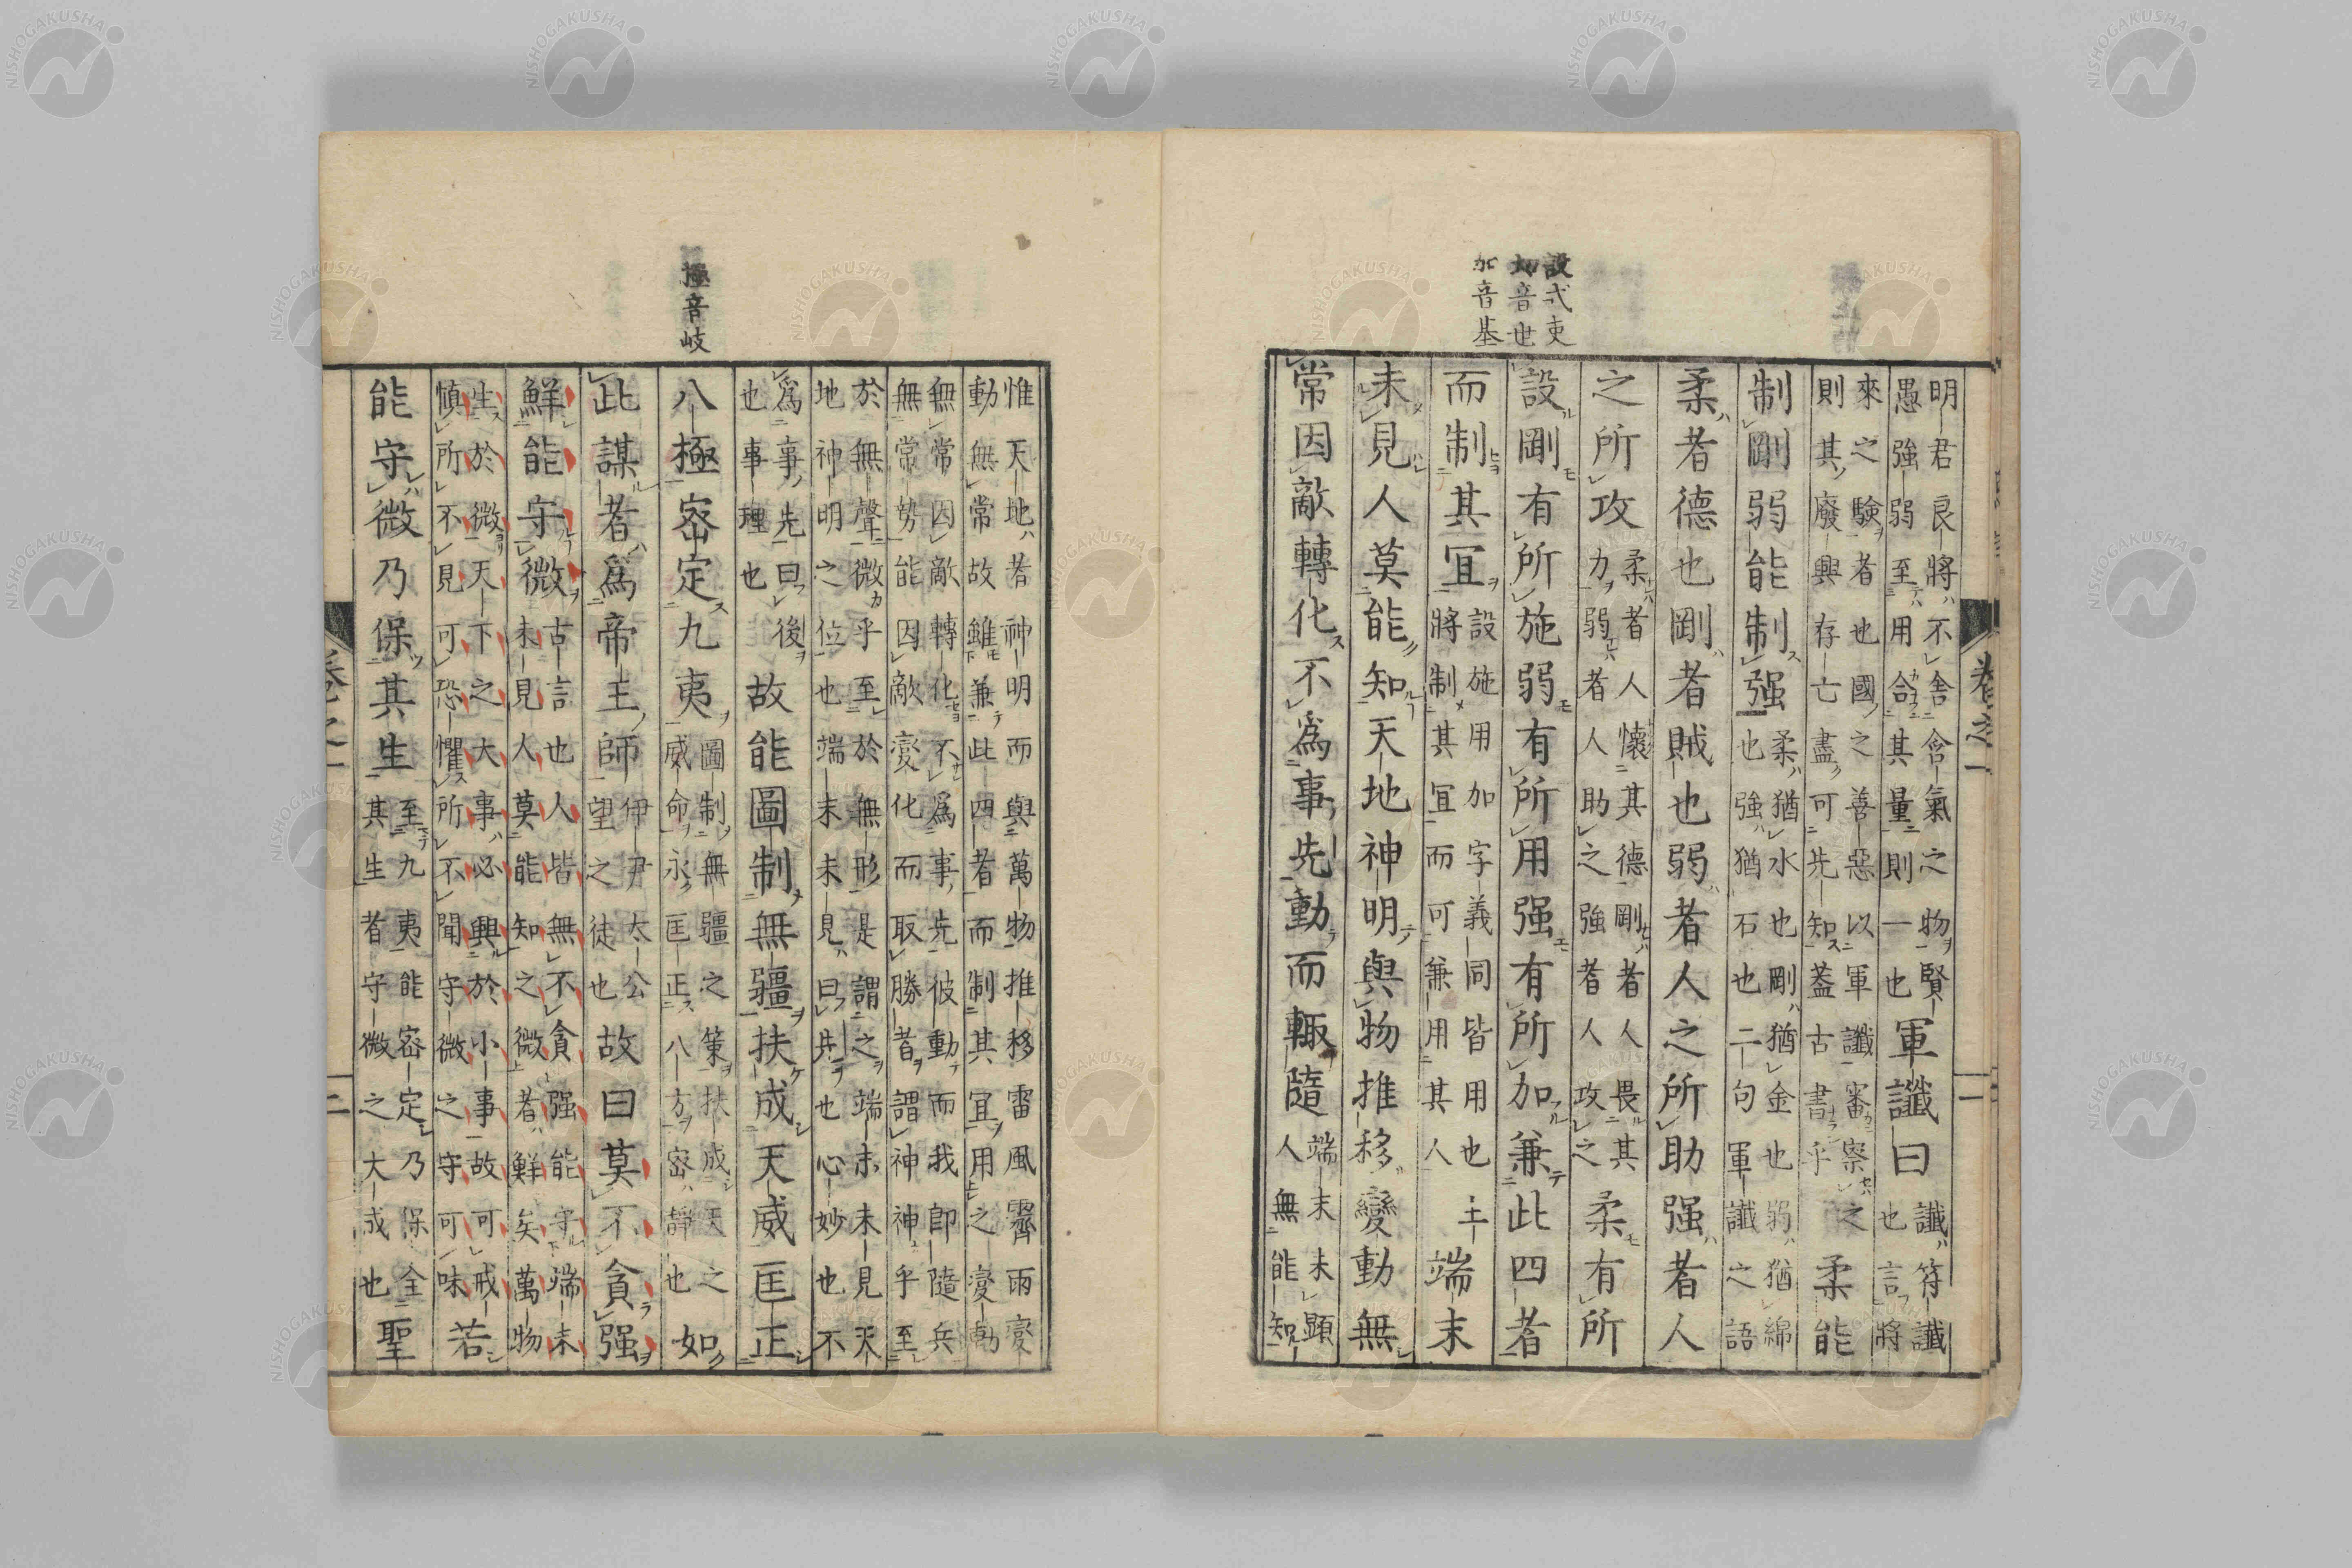 設式吏
切音世
加音基
明君良將不舍含氣之物賢
愚強弱至用合其量則一也
軍讖曰
讖符讖
也言將
來之驗者也國之善惡以軍讖審察之
則其廢興存亡盡可先知蓋古書乎
柔能
制剛弱能制强
柔猶水也剛猶金也弱猶綿
也強猶石也二句軍讖之語
柔者德也剛者賊也弱者人之所助强者人
之所攻
柔者人懷其德剛者人畏其
力弱者人助之強者人攻之
柔有所
設剛有所施弱有所用强有所加兼此四者
而制其冝
設施用加字義同皆用也主
將制其冝而可兼用其人
端末
未見人莫能知天地神明與物推移變動無
常因敵轉化不爲事先動而輙隨
端末未顯
人無能知
卷之一
二
極音岐
惟天地者神明而與萬物推移雷風霽雨變
動無常故雖兼此四者而制其冝用之變動
無常因敵轉化不爲事先彼動而我卽隨兵
無常勢能因敵變化而取勝者謂神神乎至
於無聲微乎至於無形是謂之端末未見天
地神明之位也端末未見曰共也心妙也不
爲事先曰後
也事理也
故能圖制無疆扶成天威匡正
八極密定九夷
圖制無疆之策扶成天之
威命永匡正八方密靜也
如
此謀者爲帝王師
伊尹太公
望之徒也
故曰莫不貪强
鮮能守微
古言也人皆無不貪强能守端末
未見人莫能知之微者鮮矣萬物
生於微天下之大事必興於小事故可戒
慎所不見可恐懼所不聞守微之守可味
若
能守微乃保其生
至九夷能密定乃保全
其生者守微之大成也
聖